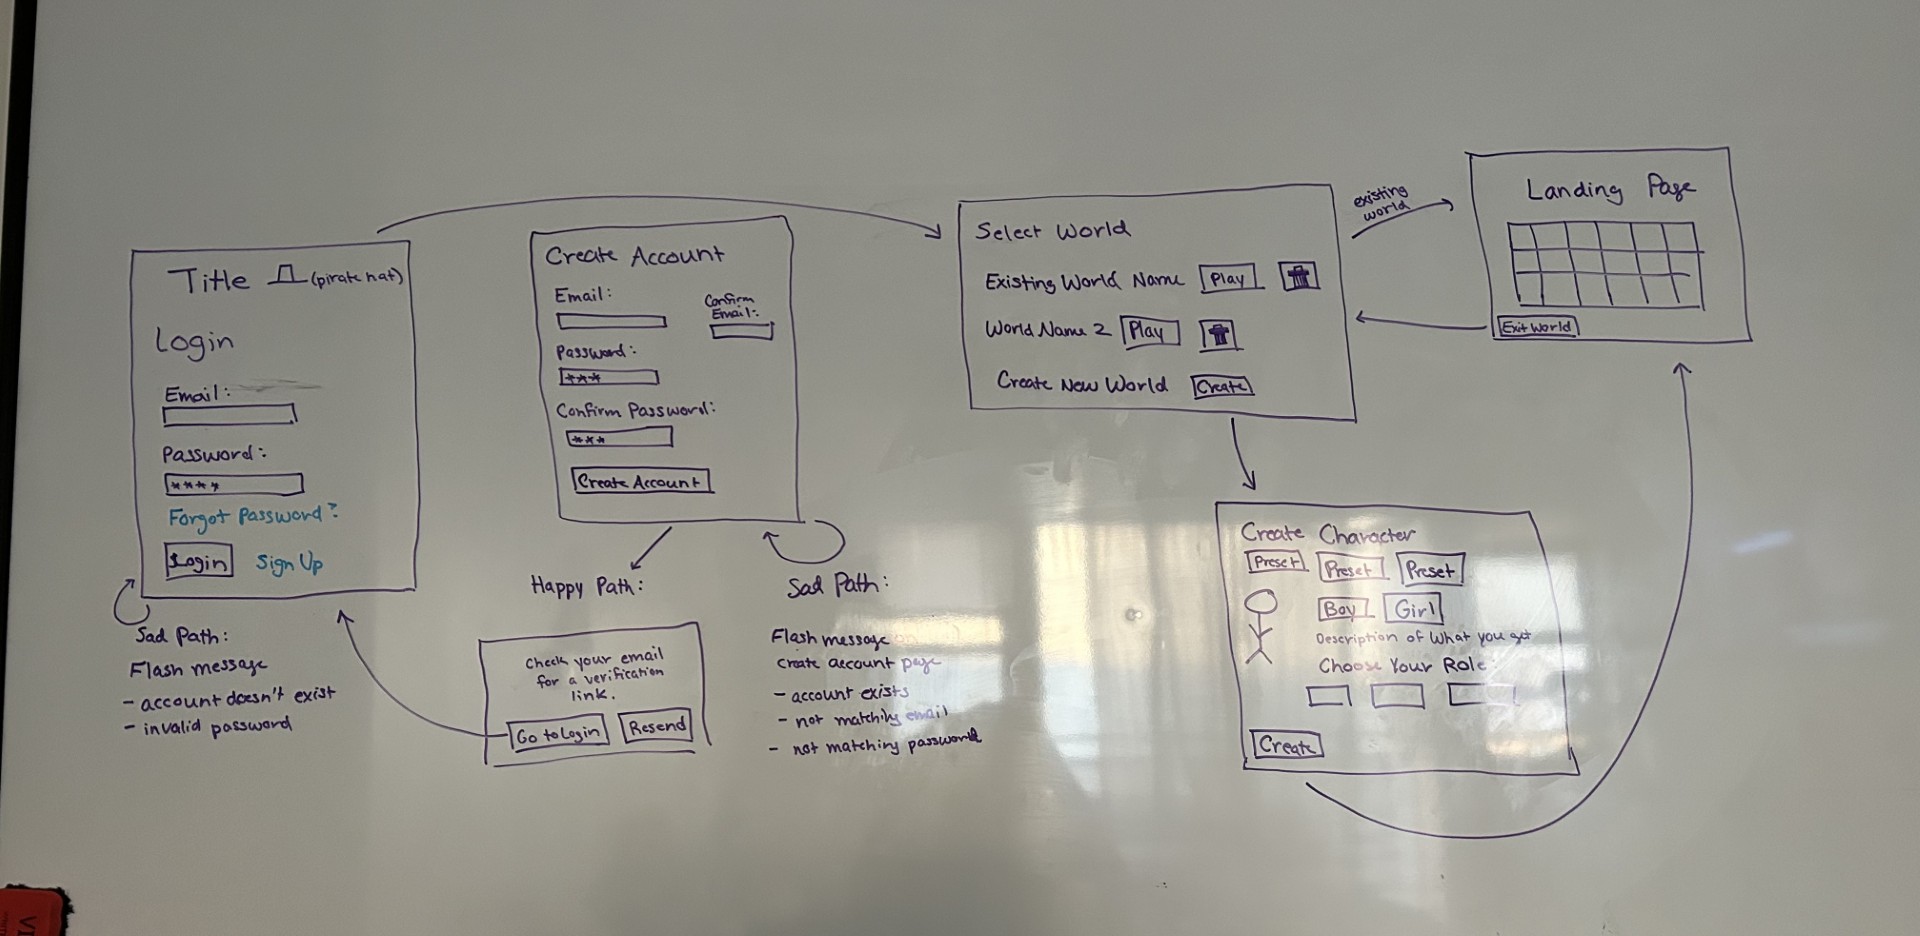 Title (pirate hat)
Login
Email:
Password:
****
Forgot Password?
Login Sign Up
Sad Path:
Flash message
- account doesn't exist
- invalid password
Create Account
Email:
Confirm
Email:
Password:
***
Confirm Password:
***
Create Account
Happy Path:
Check your email
for a verification
link.
Go to Login Resend
Sad Path:
Flash message on
create account page
- account exists
- not matching email
- not matching password
Select World
Existing World Name Play
World Name 2 Play
Create New World Create
existing
world
Landing Page
Exit World
Create Character
Preset Preset Preset
Boy Girl
Description of what you get
Choose Your Role:
Create